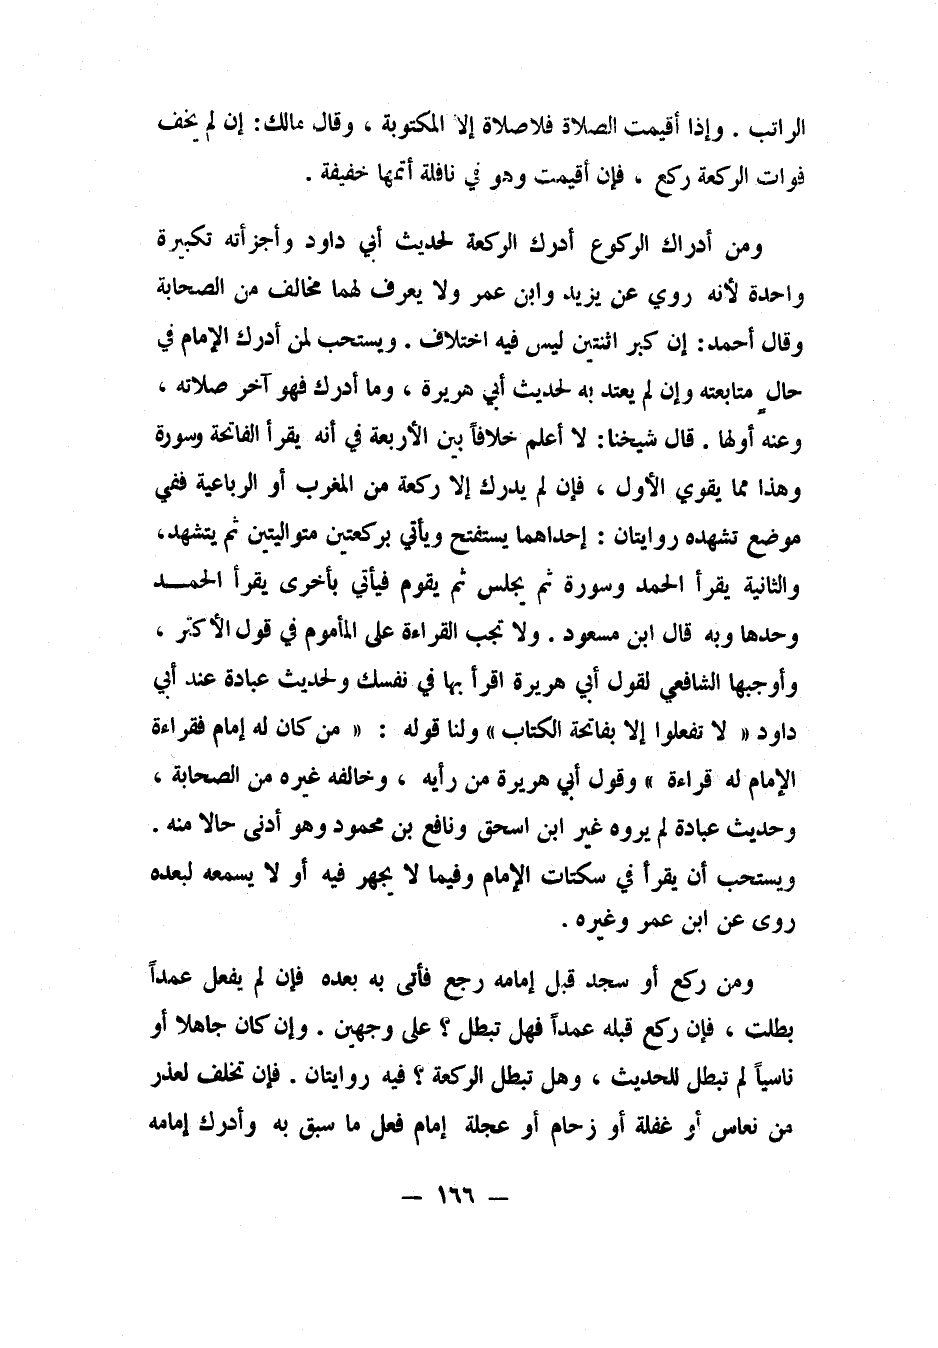 الراتب . وإذا أقيمت الصلاة فلاصلاة إلا المكتوبة ، وقال مالك: إن لم يخف
فوات الركعة ركع ، فإن أقيمت وهو في نافلة أتمها خفيفة .
ومن أدراك الركوع أدرك الركعة لحديث أبي داود وأجزأته تكبيرة
واحدة لأنه روي عن يزيد وابن عمر ولا يعرف لهما مخالف من الصحابة
وقال أحمد: إن كبر اثنتين ليس فيه اختلاف . ويستحب لمن أدرك الإمام في
حالٍ متابعته وإن لم يعتد به لحديث أبي هريرة ، وما أدرك فهو آخر صلاته ،
وعنه أولها . قال شيخنا: لا أعلم خلافاً بين الأربعة في أنه يقرأ الفاتحة وسورة
وهذا مما يقوي الأول ، فإن لم يدرك إلا ركعة من المغرب أو الرباعية ففي
موضع تشهده روايتان : إحداهما يستفتح ويأتي بركعتين متواليتين ثم يتشهد،
والثانية يقرأ الحمد وسورة ثم يجلس ثم يقوم فيأتي بأخرى يقرأ الحمـــد
وحدها وبه قال ابن مسعود . ولا تجب القراءة على المأموم في قول الأكثر ،
وأوجبها الشافعي لقول أبي هريرة اقرأ بها في نفسك ولحديث عبادة عند أبي
داود « لا تفعلوا إلا بفاتحة الكتاب » ولنا قوله : « من كان له إمام فقراءة
الإمام له قراءة » وقول أبي هريرة من رأيه ، وخالفه غيره من الصحابة ،
وحديث عبادة لم يروه غير ابن اسحق ونافع بن محمود وهو أدنى حالا منه .
ويستحب أن يقرأ في سكتات الإمام وفيما لا يجهر فيه أو لا يسمعه لبعده
روى عن ابن عمر وغيره .
ومن ركع أو سجد قبل إمامه رجع فأتى به بعده فإن لم يفعل عمداً
بطلت ، فإن ركع قبله عمداً فهل تبطل ؟ على وجهين . وإن كان جاهلا أو
ناسياً لم تبطل للحديث ، وهل تبطل الركعة ؟ فيه روايتان . فإن تخلف لعذر
من نعاس أو غفلة أو زحام أو عجلة إمام فعل ما سبق به وأدرك إمامه
— ١٦٦ —